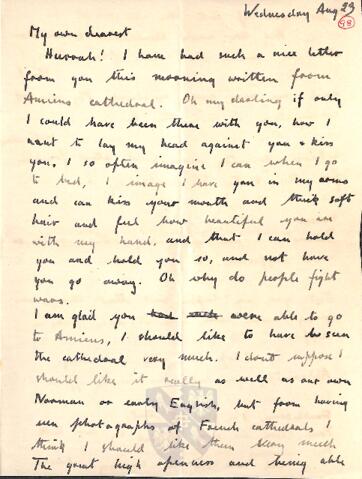 Wednesday Aug 29
98
My own dearest
Hurrah! I have had such a nice letter
from you this morning written from
Amiens cathedral. Oh my darling if only
I could have been there with you, how I
want to lay my head against you & kiss
you, I so often imagine I can when I go
to bed, I image I have you in my arms
and can kiss your mouth and thick soft
hair and feel how beautiful you are
with my hand, and that I can hold
you and hold you so, and not have
you go away. Oh why do people fight
wars.
I am glad you were able to go
to Amiens, I should like to have seen
the cathedral very much. I don't suppose I
should like it really as well as our own
Norman or early English, but from having
seen photographs of French cathedrals I
think I should like them very much
The great high openness and being able